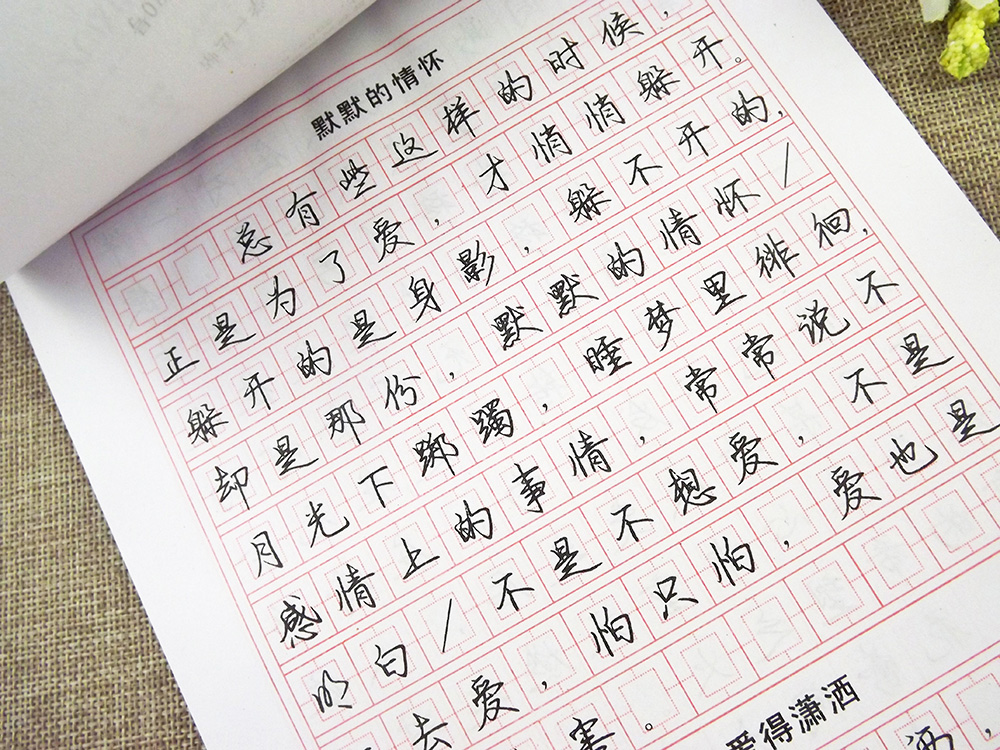 默默的情怀
总有些这样的时候，
正是为了爱，才悄悄躲开。
躲开的是身影，躲不开的，
却是那份，默默的情怀/
月光下踯躅，睡梦里徘徊，
感情上的事情，常常说不
明白/不是不想爱，不是
去爱，怕只怕，爱也是
害。
爱得潇洒
洒，